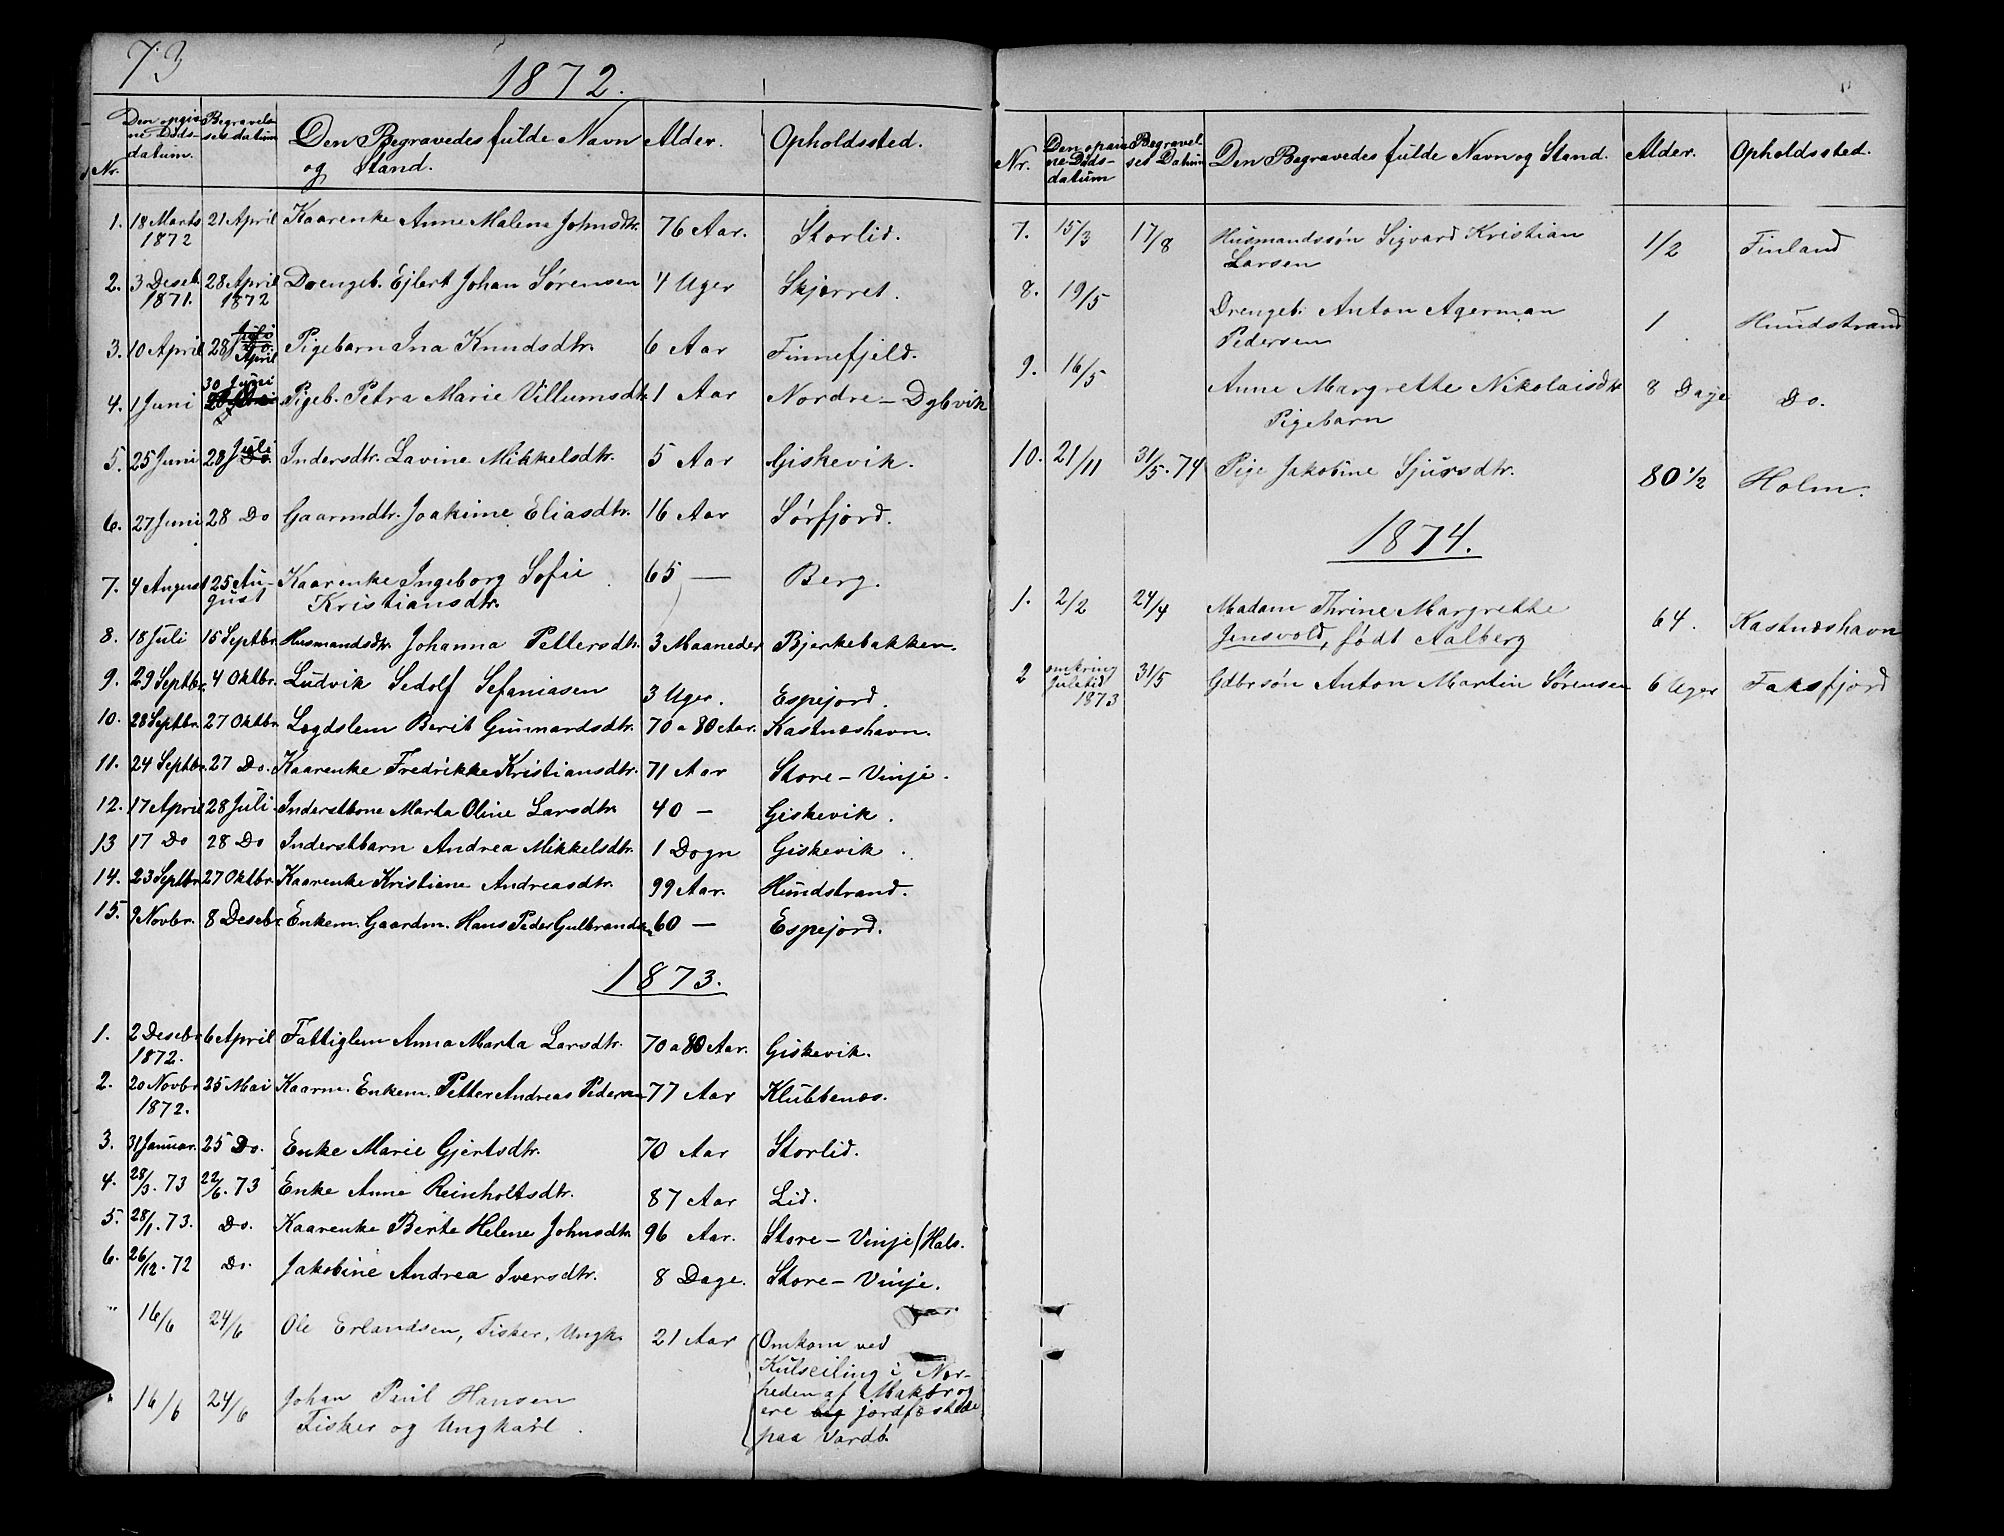 73
1872.
Nr. Den opgivne Dødsdatum. Begravelsesdatum Den Begravedes fulde Navn og Stand. Alder. Opholdssted.
1. 18 Marts 1872 21 April Kaarenke Anne Malene Johnsdtr. 76 Aar. Storlid.
2. 3 Desebr. 1871. 28 April 1872 Drengeb. Ejlert Johan Sørensen 4 Uger Skjærret.
3. 10 April 28 April Pigebarn Ina Knudsdtr. 6 Aar Finnefjeld.
4. 1 Juni 30 Juni Pigeb. Petra Marie Villumsdtr 1 Aar Nordre-Dybvik
5. 25 Juni 28 Juli Indersdtr. Lavine Mikkelsdtr. 5 Aar Giskevik.
6. 27 Juni 28 Do Gaarmdtr. Joakime Eliasdtr. 16 Aar Sørfjord.
7. 4 August 25 August Kaarenke Ingeborg Sofie
Kristiansdtr. 65 — Berg.
8. 18 Juli 15 Septbr. Husmandsdtr. Johanna Pettersdtr. 3 Maaneder Bjerkebakken.
9. 29 Septbr. 4 Oktbr. Ludvik Sedolf Sefaniasen 3 Uger. Espejord.
10. 28 Septbr. 27 Oktbr. Lægdslem Berit Gunnardsdtr. 70 a 80 Aar. Kastnæshavn.
11. 24 Septbr. 27 Do. Kaarenke Fredrikke Kristiansdtr. 71 Aar Store-Vinje.
12. 17 April 28 Juli Inderstkone Marta Oline Larsdtr. 40 — Giskevik.
13 17 Do 28 Do Inderstbarn Andrea Mikkelsdtr. 1 Døgn Giskevik.
14. 23 Septbr. 27 Oktbr. Kaarenke Kristiene Andreasdtr. 99 Aar. Hundstrand.
15. 9 Novbr. 8 Desebr. Enkem. Gaardm. Hans Peder Gulbrandsen 60 — Espejord.
1873.
1. 2 Desebr 1872. 6 April Fattiglem Anna Marta Larsdtr. 70 a 80 Aar. Giskevik.
2. 20 Novbr 1872. 25 Mai Kaarm. Enkem. Petter Andreas Pedersen 77 Aar Klubbenæs.
3. 31 Januar. 25 Do. Enke Marie Gjertsdtr. 70 Aar Storlid.
4. 28/3. 73 22/6. 73 Enke Anne Reinholtsdtr. 87 Aar Lid.
5. 28/1. 73. Do. Kaarenke Berte Helene Johnsdtr. 96 Aar. Store-Vinje/Hals.
6. 26/12. 72 Do. Jakobine Andrea Iversdtr. 8 Dage. Store-Vinje.
" 16/6 24/6 Ole Erlandsen, Fisker, Ungk. 21 Aar
" 16/6 24/6 Johan Paul Hansen
Fisker og Ungkarl.
Omkom ved
Kulseiling i Nær-
heden af Makør og
ere beg jordfæstede
paa Vardö.
Nr. Den opgivne Døds-datum Begravelses Datum Den Begravedes fulde Navn og Stand. Alder. Opholdssted.
7. 15/3 17/8 Husmandssøn Sigvard Kristian
Larsen 1/2 Finland
8. 19/5 Drengeb: Anton Agerman
Pedersen 1 Hundstrand
9. 16/5 Anne Margrette Nikolaisdtr
Pigebarn 8 Dage Do.
10. 21/11 31/5. 74 Pige Jakobine Sjursdtr. 80 1/2 Holm.
1874.
1. 2/2 24/4 Madam Thrine Margrette
Jensvold, født Aalberg 64. Kastnæshavn
2 omkring Juletid 1873 31/5 Gdbrsøn Anton Martin Sørensen 6 Uger Faksfjord